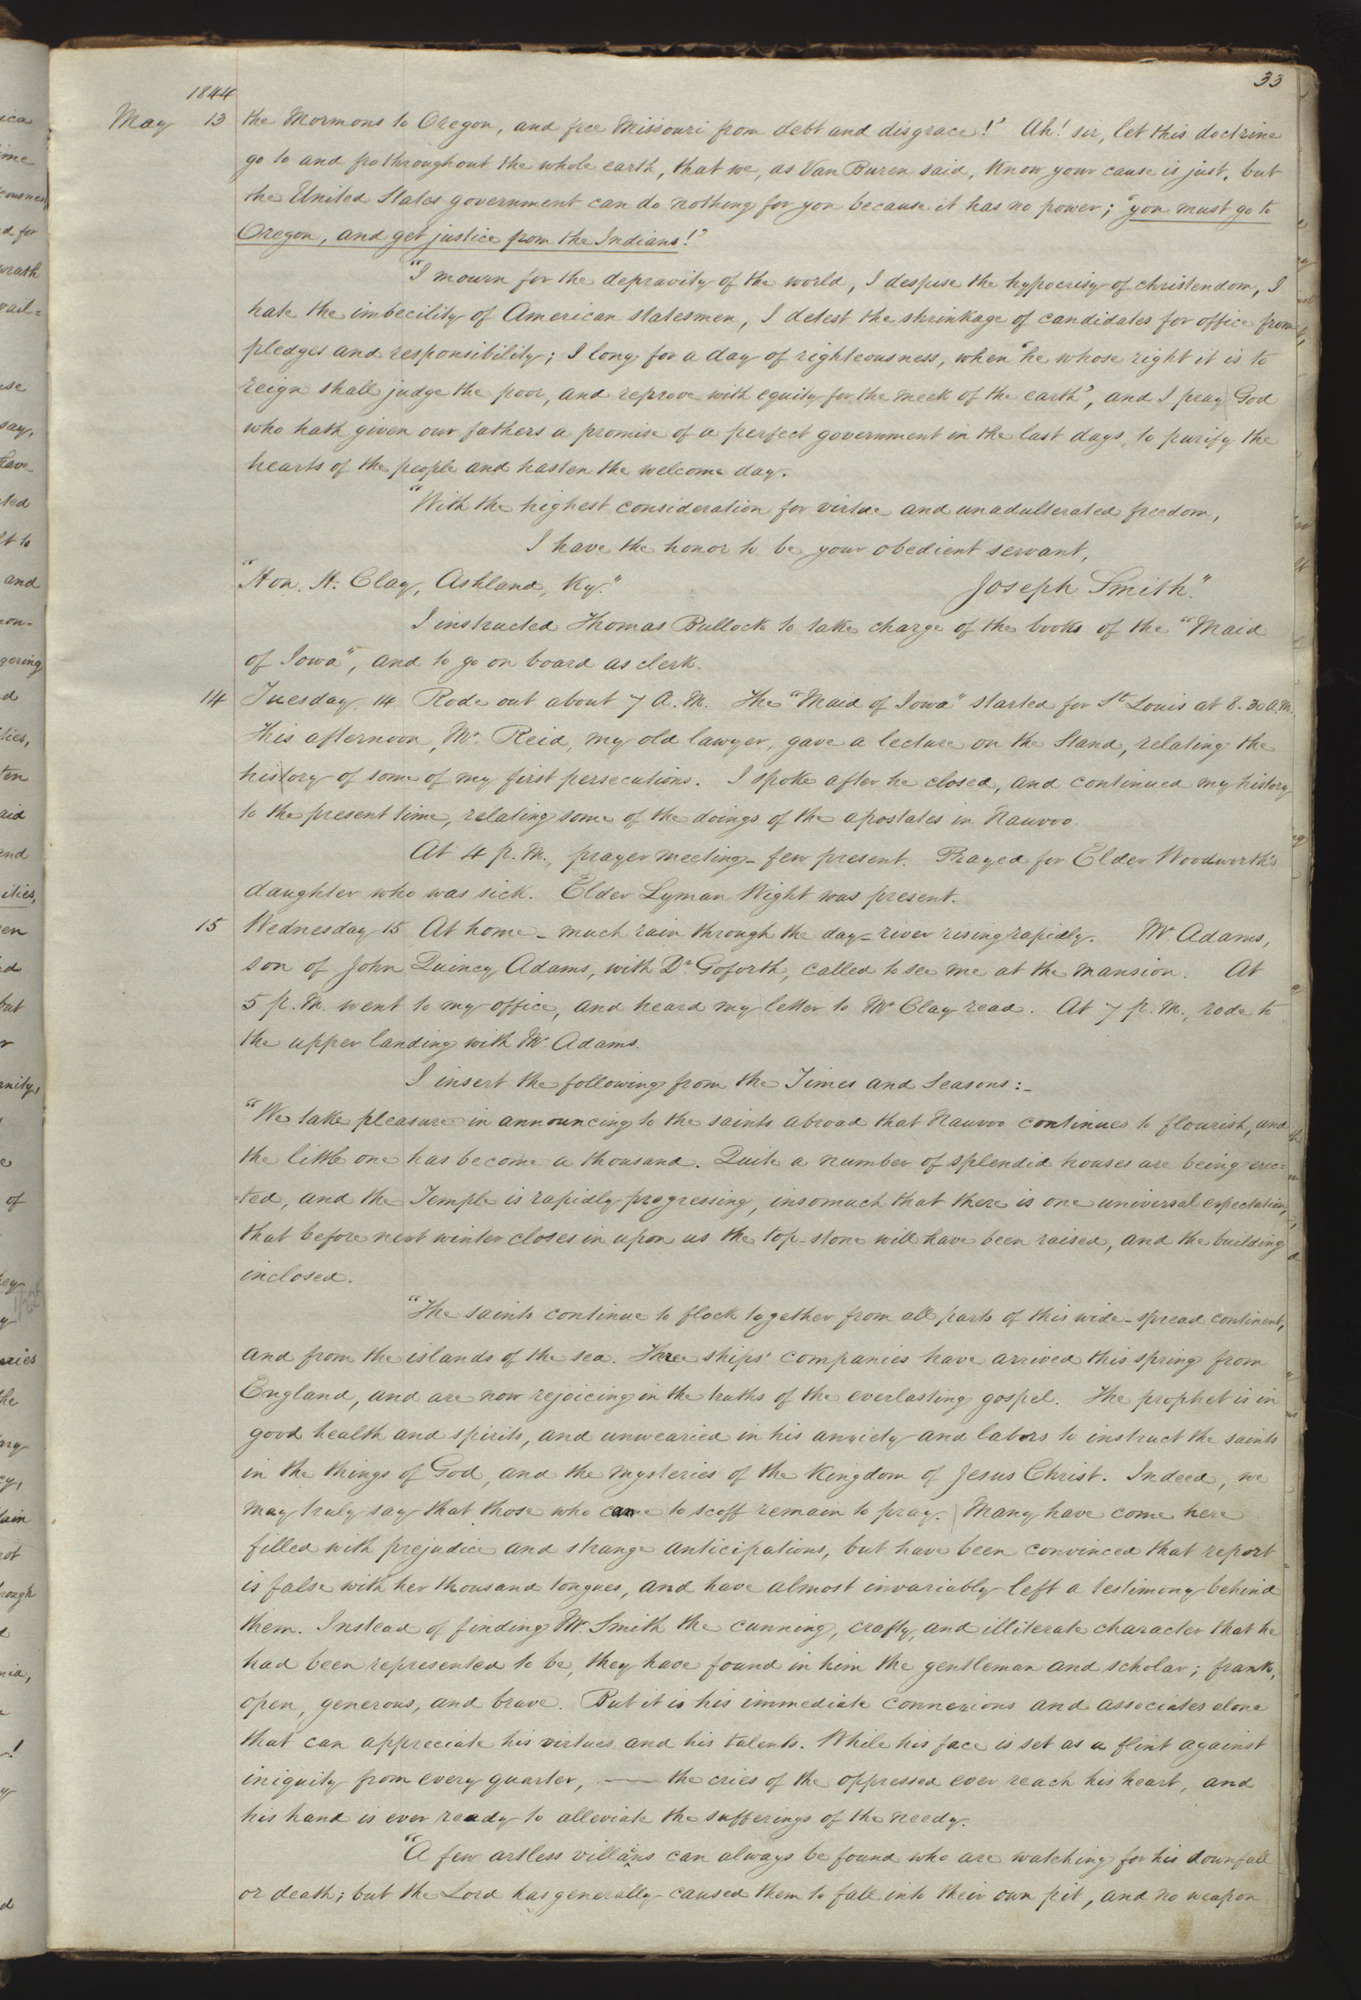 33
1844
May 13 the Mormons to Oregon, and free Missouri from debt and disgrace!" Ah! sir, let this doctrine
go to and fro throughout the whole earth, that we, as Van Buren said, know your cause is just, but
the United States government can do nothing for you because it has no power; "you must go to
Oregon, and get justice from the Indians!"
"I mourn for the depravity of the world, I despise the hypocrisy of christendom, I
hate the imbecility of American statesmen, I detest the shrinkage of candidates for office from
pledges and responsibility; I long for a day of righteousness, when "he whose right it is to
reign shall judge the poor, and reprove with equity for the meek of the earth", and I pray God
who hath given our fathers a promise of a perfect government in the last days, to purify the
hearts of the people and hasten the welcome day.
"With the highest consideration for virtue and unadulterated freedom,
I have the honor to be your obedient servant,
"Hon. H. Clay, Ashland, Ky." Joseph Smith."
I instructed Thomas Bullock to take charge of the books of the "Maid
of Iowa", and to go on board as clerk.
14 Tuesday 14 Rode out about 7 A.M. The "Maid of Iowa" started for St Louis at 8.30 A.M.
This afternoon, Mr. Reid, my old lawyer, gave a lecture on the Stand, relating the
history of some of my first persecutions. I spoke after he closed, and continued my history
to the present time, relating some of the doings of the apostates in Nauvoo.
At 4 p.M., prayer meeting – few present. Prayed for Elder Woodworth's
daughter who was sick. Elder Lyman Wight was present.
15 Wednesday 15 At home – much rain through the day – river rising rapidly. Mr. Adams,
son of John Quincy Adams, with Dr. Goforth, called to see me at the mansion. At
5 p.M. went to my office, and heard my letter to Mr Clay read. At 7 p.M., rode to
the upper landing with Mr Adams.
I insert the following from the Times and Seasons:–
"We take pleasure in announcing to the saints abroad that Nauvoo continues to flourish, and
the little one has become a thousand. Quite a number of splendid houses are being erec=
=ted, and the Temple is rapidly progressing, insomuch that there is one universal expectation,
that before next winter closes in upon us the top-stone will have been raised, and the building
inclosed.
"The saints continue to flock together from all parts of this wide-spread continent,
and from the islands of the sea. Three ships' companies have arrived this spring from
England, and are now rejoicing in the truths of the everlasting gospel. The prophet is in
good health and spirits, and unwearied in his anxiety and labors to instruct the saints
in the things of God, and the mysteries of the kingdom of Jesus Christ. Indeed, we
may truly say that those who came to scoff remain to pray. Many have come here
filled with prejudice and strange anticipations, but have been convinced that report
is false with her thousand tongues, and have almost invariably left a testimony behind
them. Instead of finding Mr. Smith the cunning, crafty, and illiterate character that he
had been represented to be, they have found in him the gentleman and scholar; frank,
open, generous, and brave. But it is his immediate connexions and associates alone
that can appreciate his virtues and his talents. While his face is set as a flint against
iniquity from every quarter, —— the cries of the oppressed ever reach his heart, and
his hand is ever ready to alleviate the sufferings of the needy.
"A few artless villains can always be found who are watching for his downfall
or death; but the Lord has generally caused them to fall into their own pit, and no weapon